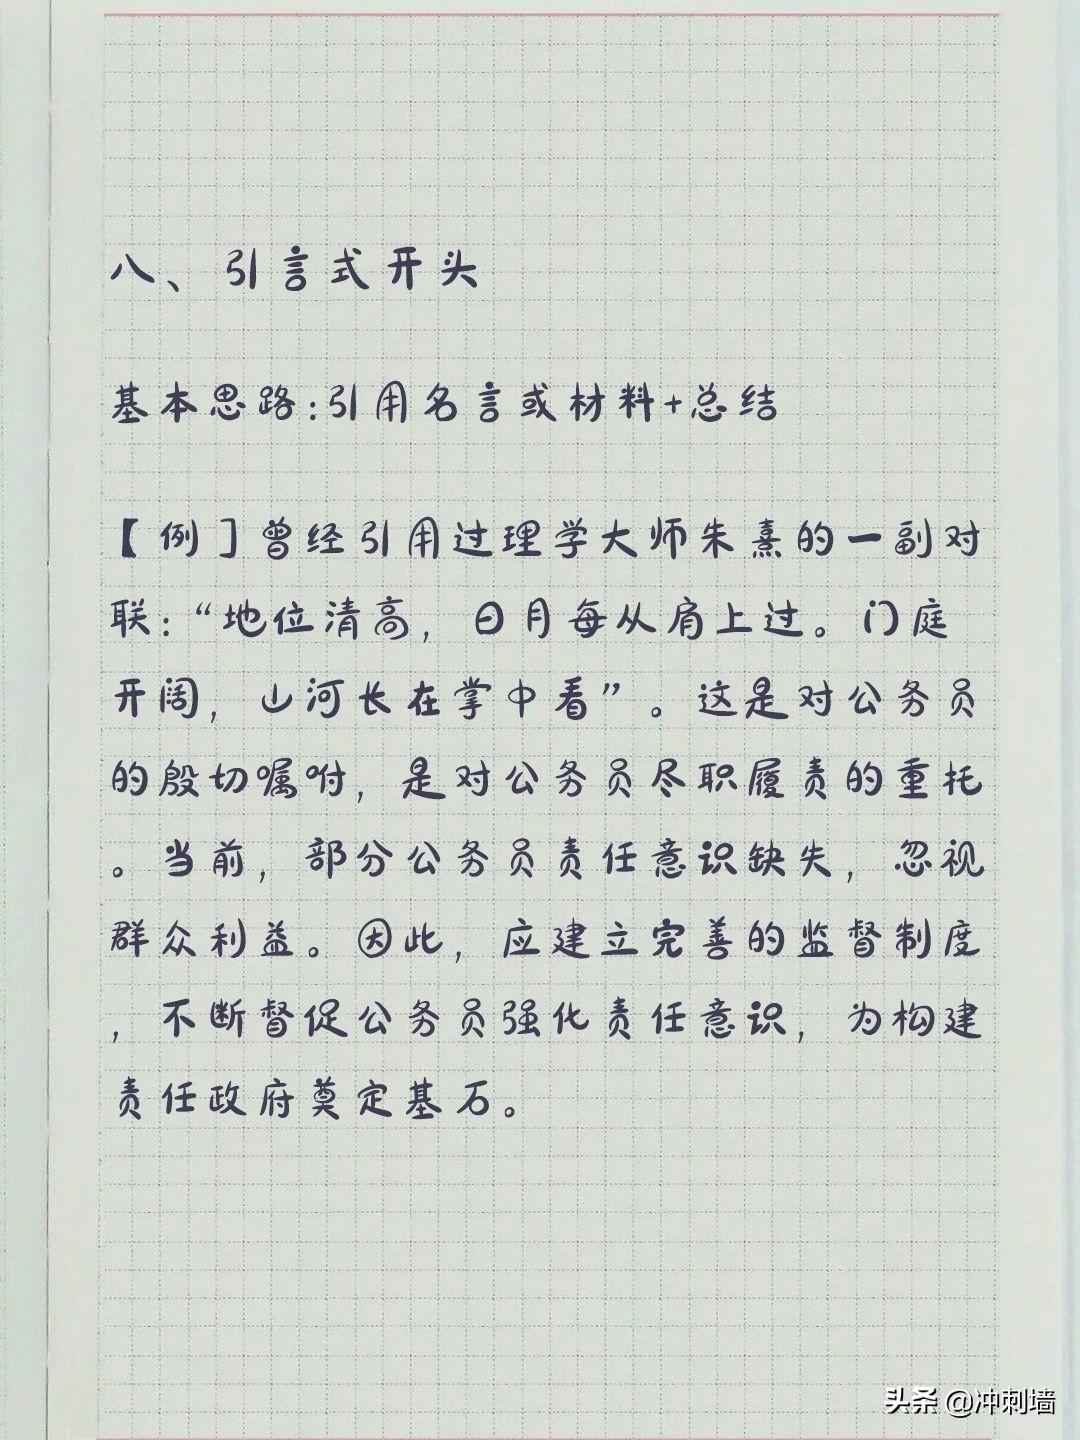 八、引言式开头
基本思路:引用名言或材料+总结
【例]曾经引用过理学大师朱熹的一副对
联:“地位清高,日月每从肩上过。门庭
开阔,山河长在掌中看”。这是对公务员
的殷切嘱咐,是对公务员尽职履责的重托
。当前,部分公务员责任意识缺失,忽视
群众利益。因此,应建立完善的监督制度
,不断督促公务员强化责任意识,为构建
责任政府奠定基石。
头条 @冲刺墙